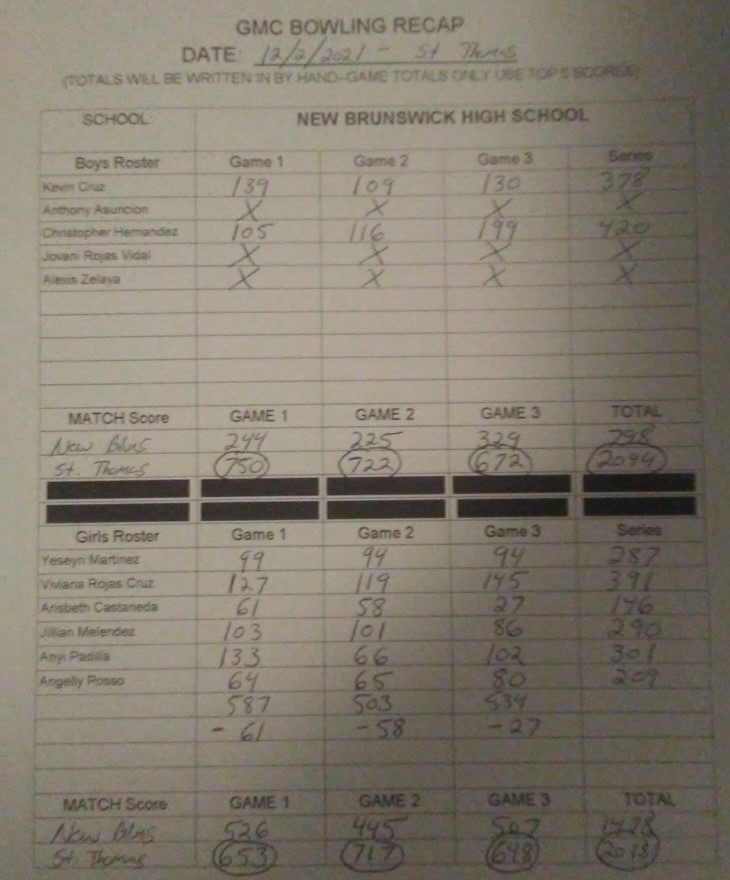 GMC BOWLING RECAP
DATE: 12/2/2021 - St Thomas
(TOTALS WILL BE WRITTEN IN BY HAND--GAME TOTALS ONLY USE TOP 5 SCORES)
SCHOOL: NEW BRUNSWICK HIGH SCHOOL
Boys Roster Game 1 Game 2 Game 3 Series
Kevin Cruz 139 109 130 378
Anthony Asuncion X X X X
Christopher Hernandez 105 116 199 420
Jovani Rojas Vidal X X X X
Alexis Zelaya X X X X
MATCH Score GAME 1 GAME 2 GAME 3 TOTAL
New 244 225 329 798
St. Thomas 750 722 672 2044
Girls Roster Game 1 Game 2 Game 3 Series
Yeseyri Martinez 99 94 94 287
Viviana Rojas Cruz 127 119 145 391
Arisbeth Castaneda 61 58 27 146
Jillian Melendez 103 101 86 290
Anyi Padilla 133 66 102 301
Angelly Posso 64 65 80 209
587 503 534
- 61 - 58 - 27
MATCH Score GAME 1 GAME 2 GAME 3 TOTAL
New 526 445 507 1478
St Thomas 653 717 648 2018